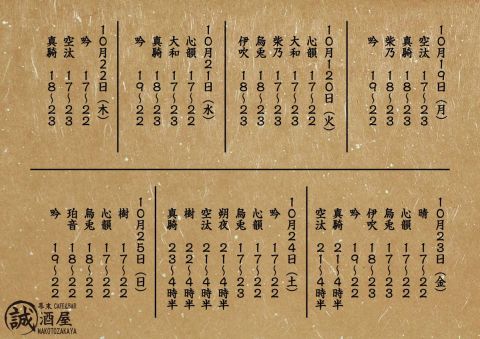 10月19日（月）
空汰 17〜23
真騎 18〜23
柴乃 18〜22
吟 19〜22
10月120日（火）
心韻 17〜22
大和 17〜23
柴乃 17〜23
烏兎 18〜22
伊吹 18〜23
10月21日（水）
心韻 17〜22
大和 17〜23
真騎 18〜22
吟 19〜22
10月22日（木）
吟 17〜22
空汰 17〜23
真騎 18〜23
10月23日（金）
晴 17〜22
心韻 17〜22
烏兎 17〜23
伊吹 18〜23
吟 18〜22
真騎 21〜4時半
空汰 21〜4時半
10月24日（土）
吟 17〜22
心韻 17〜22
烏兎 17〜22
朔夜 21〜4時半
空汰 21〜4時半
樹 22〜4時半
真騎 23〜4時半
10月25日（日）
樹 17〜22
心韻 17〜22
烏兎 18〜22
珀音 18〜22
吟 19〜22
幕末 CAFE&BAR
誠酒屋
MAKOTOZAKAYA